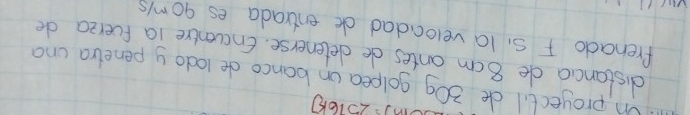 Un proyectil de 30g golpea un banco de lodo y penetra una
distancia de 8cm antes de detenerse. Encuentre la fuerza de
frenado F si la velocidad de entrada es 90 m/s